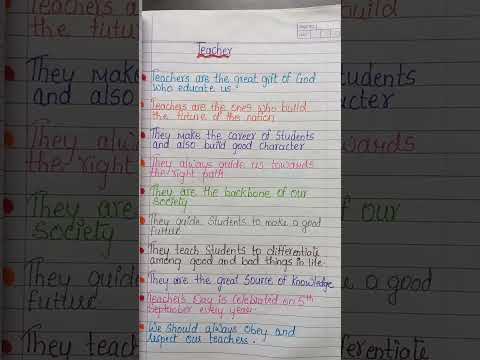 Teacher
Teachers are the great gift of God
who educate us.
Teachers are the ones who build
the future of the nation
They make the career of Students
and also build good character
They always guide us towards
the right path
They are the backbone of our
Society
They guide Students to make a good
future
They teach Students to differentiate
among good and bad things in life.
They are the great Source of Knowledge
Teacher's Day is Celebrated on 5th
September every year
We should always obey and
respect our teachers.